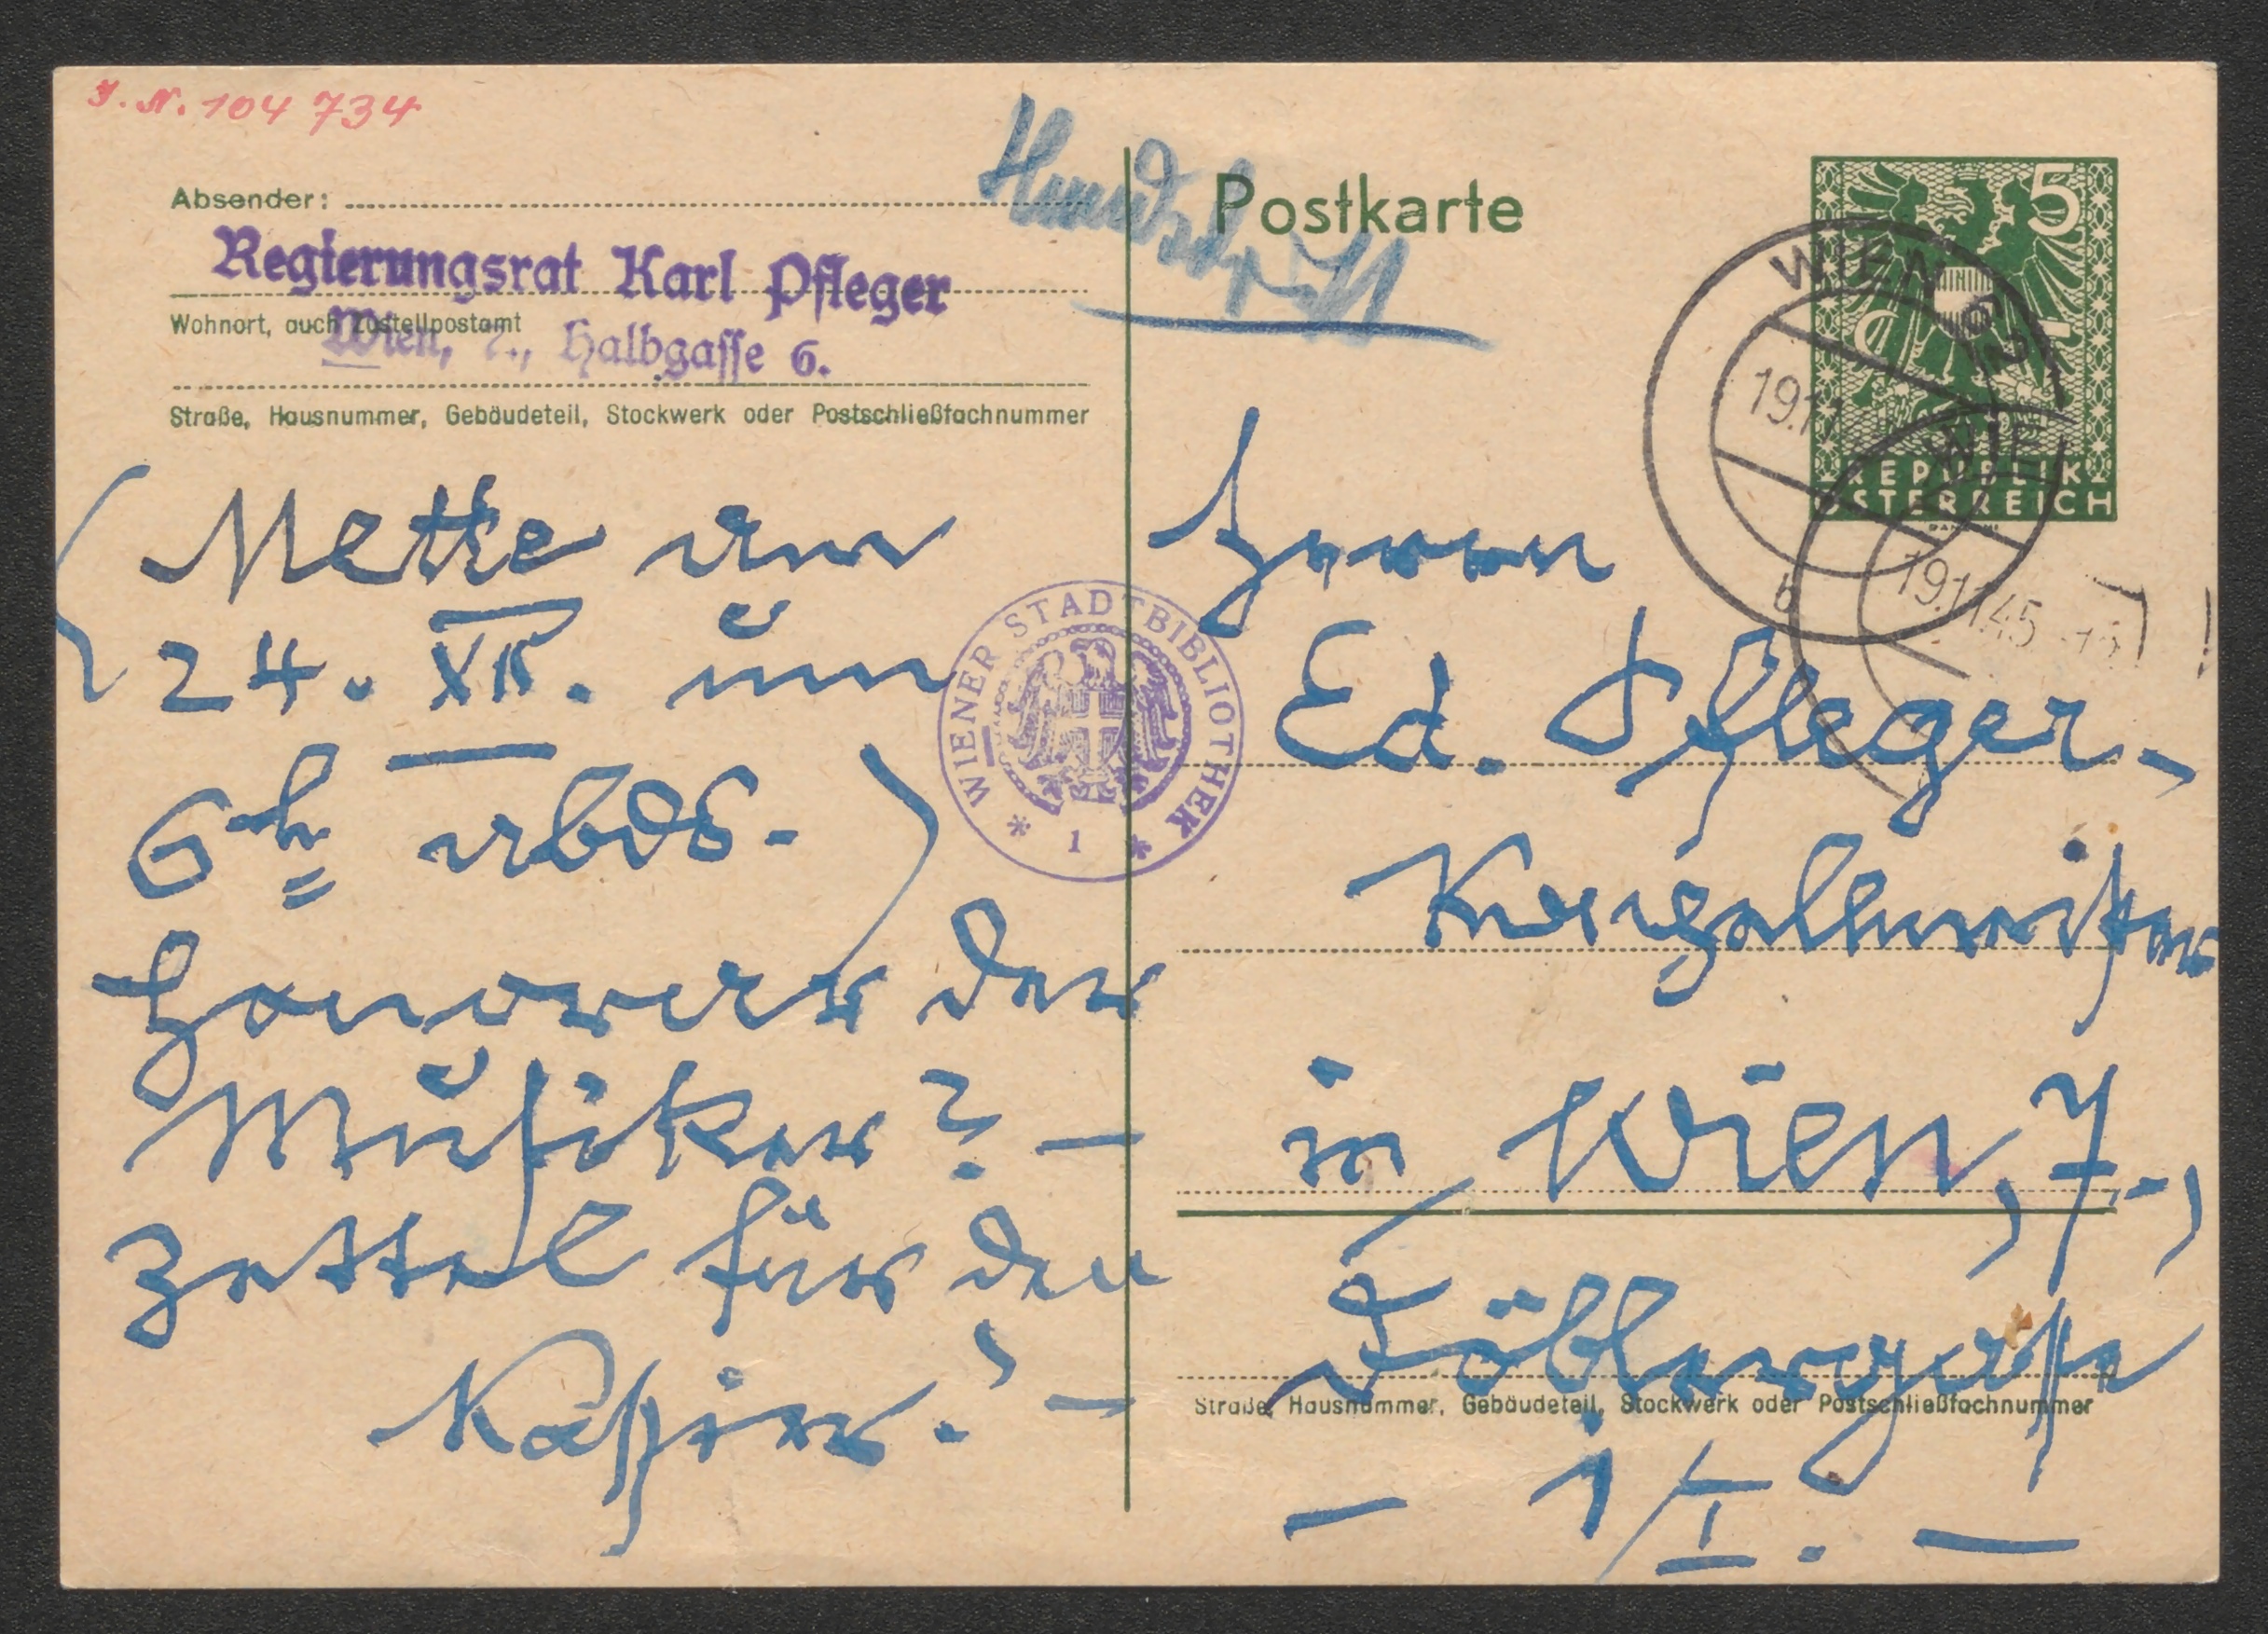 J. N. 104 734
Absender:
Regierungsrat Karl Pfleger
Wohnort, auch Zustellpostamt
Wien, 7., Halbgasse 6.
Straße, Hausnummer, Gebäudeteil, Stockwerk oder Postschließfachnummer
(Mette am
24. XII. um
6h abds.)
Honorar der
Musiker? –
Zettel für den
Kassier. –
WIENER STADTBIBLIOTHEK
* 1 *
Handschrift
Postkarte
5
REPUBLIK
ÖSTERREICH
WIEN 62
19.11
b
WIE
19.11.45
Herrn
Ed. Pfleger,
in Wien, 7.,
Döblergasse
Straße, Hausnummer, Gebäudeteil, Stockwerk oder Postschließfachnummer
– 1/I. –